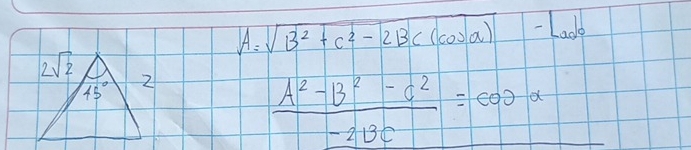 A = √B² + c² - 2BC (cos α) - Lado
2√2
45°
2
A² - B² - c² / -2BC = cos α